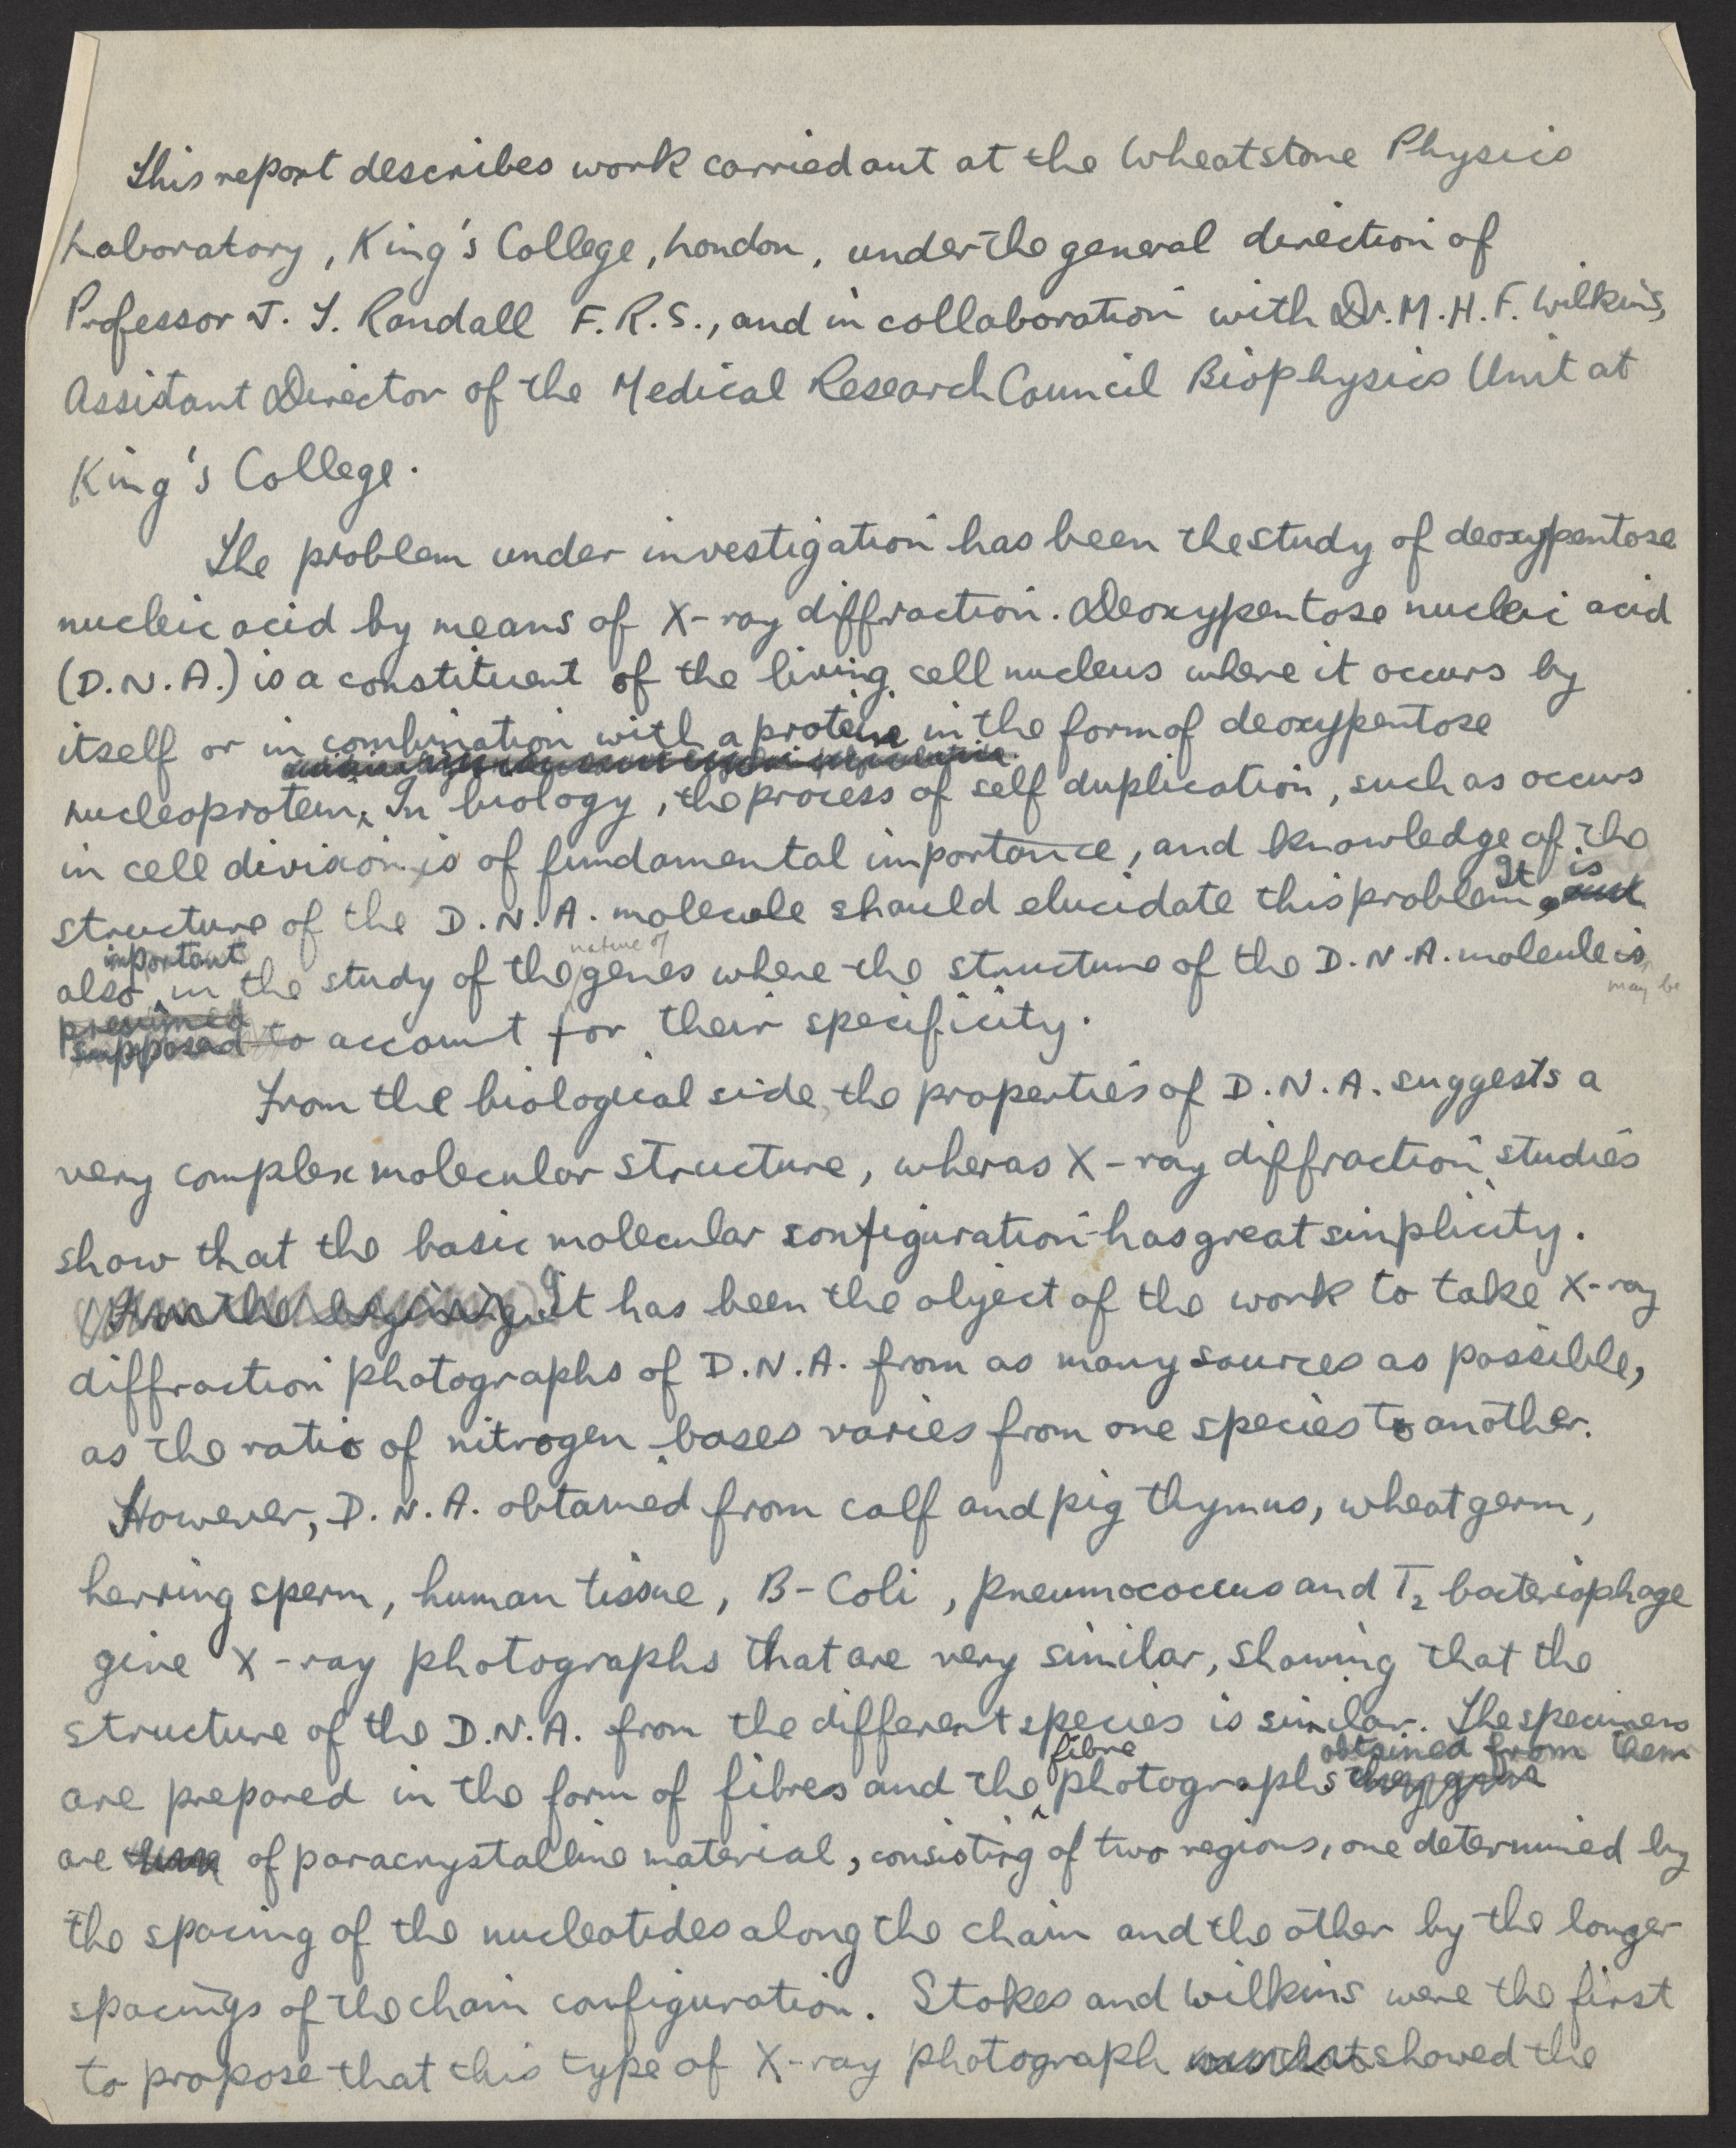 This report describes work carried out at the Wheatstone Physics
Laboratory, King's College, London, under the general direction of
Professor J. T. Randall F.R.S., and in collaboration with Dr. M.H.F. Wilkins,
Assistant Director of the Medical Research Council Biophysics Unit at
King's College.
The problem under investigation has been the study of deoxypentose
nucleic acid by means of X-ray diffraction. Deoxypentose nucleic acid
(D.N.A.) is a constituent of the living cell nucleus where it occurs by
itself or in combination with a protein in the form of deoxypentose
nucleoprotein. In biology, the process of self duplication, such as occurs
in cell division is of fundamental importance, and knowledge of the
structure of the D.N.A. molecule should elucidate this problem. It is
also important in the study of the nature of genes where the structure of the D.N.A. molecule is may be
presumed supposed to account for their specificity.
From the biological side, the properties of D.N.A. suggests a
very complex molecular structure, wheras X-ray diffraction studies
show that the basic molecular configuration has great simplicity.
From the begining It has been the object of the work to take X-ray
diffraction photographs of D.N.A. from as many sources as possible,
as the ratio of nitrogen bases varies from one species to another.
However, D.N.A. obtained from calf and pig thymus, wheat germ,
herring sperm, human tissue, B-Coli, pneumococcus and T₂ bacteriophage
give X-ray photographs that are very similar, showing that the
structure of the D.N.A. from the different species is similar. The specimens
are prepared in the form of fibres and the fibre photographs they give obtained from them
are of paracrystalline material, consisting of two regions, one determined by
the spacing of the nucleotides along the chain and the other by the longer
spacings of the chain configuration. Stokes and Wilkins were the first
to propose that this type of X-ray photograph showed the